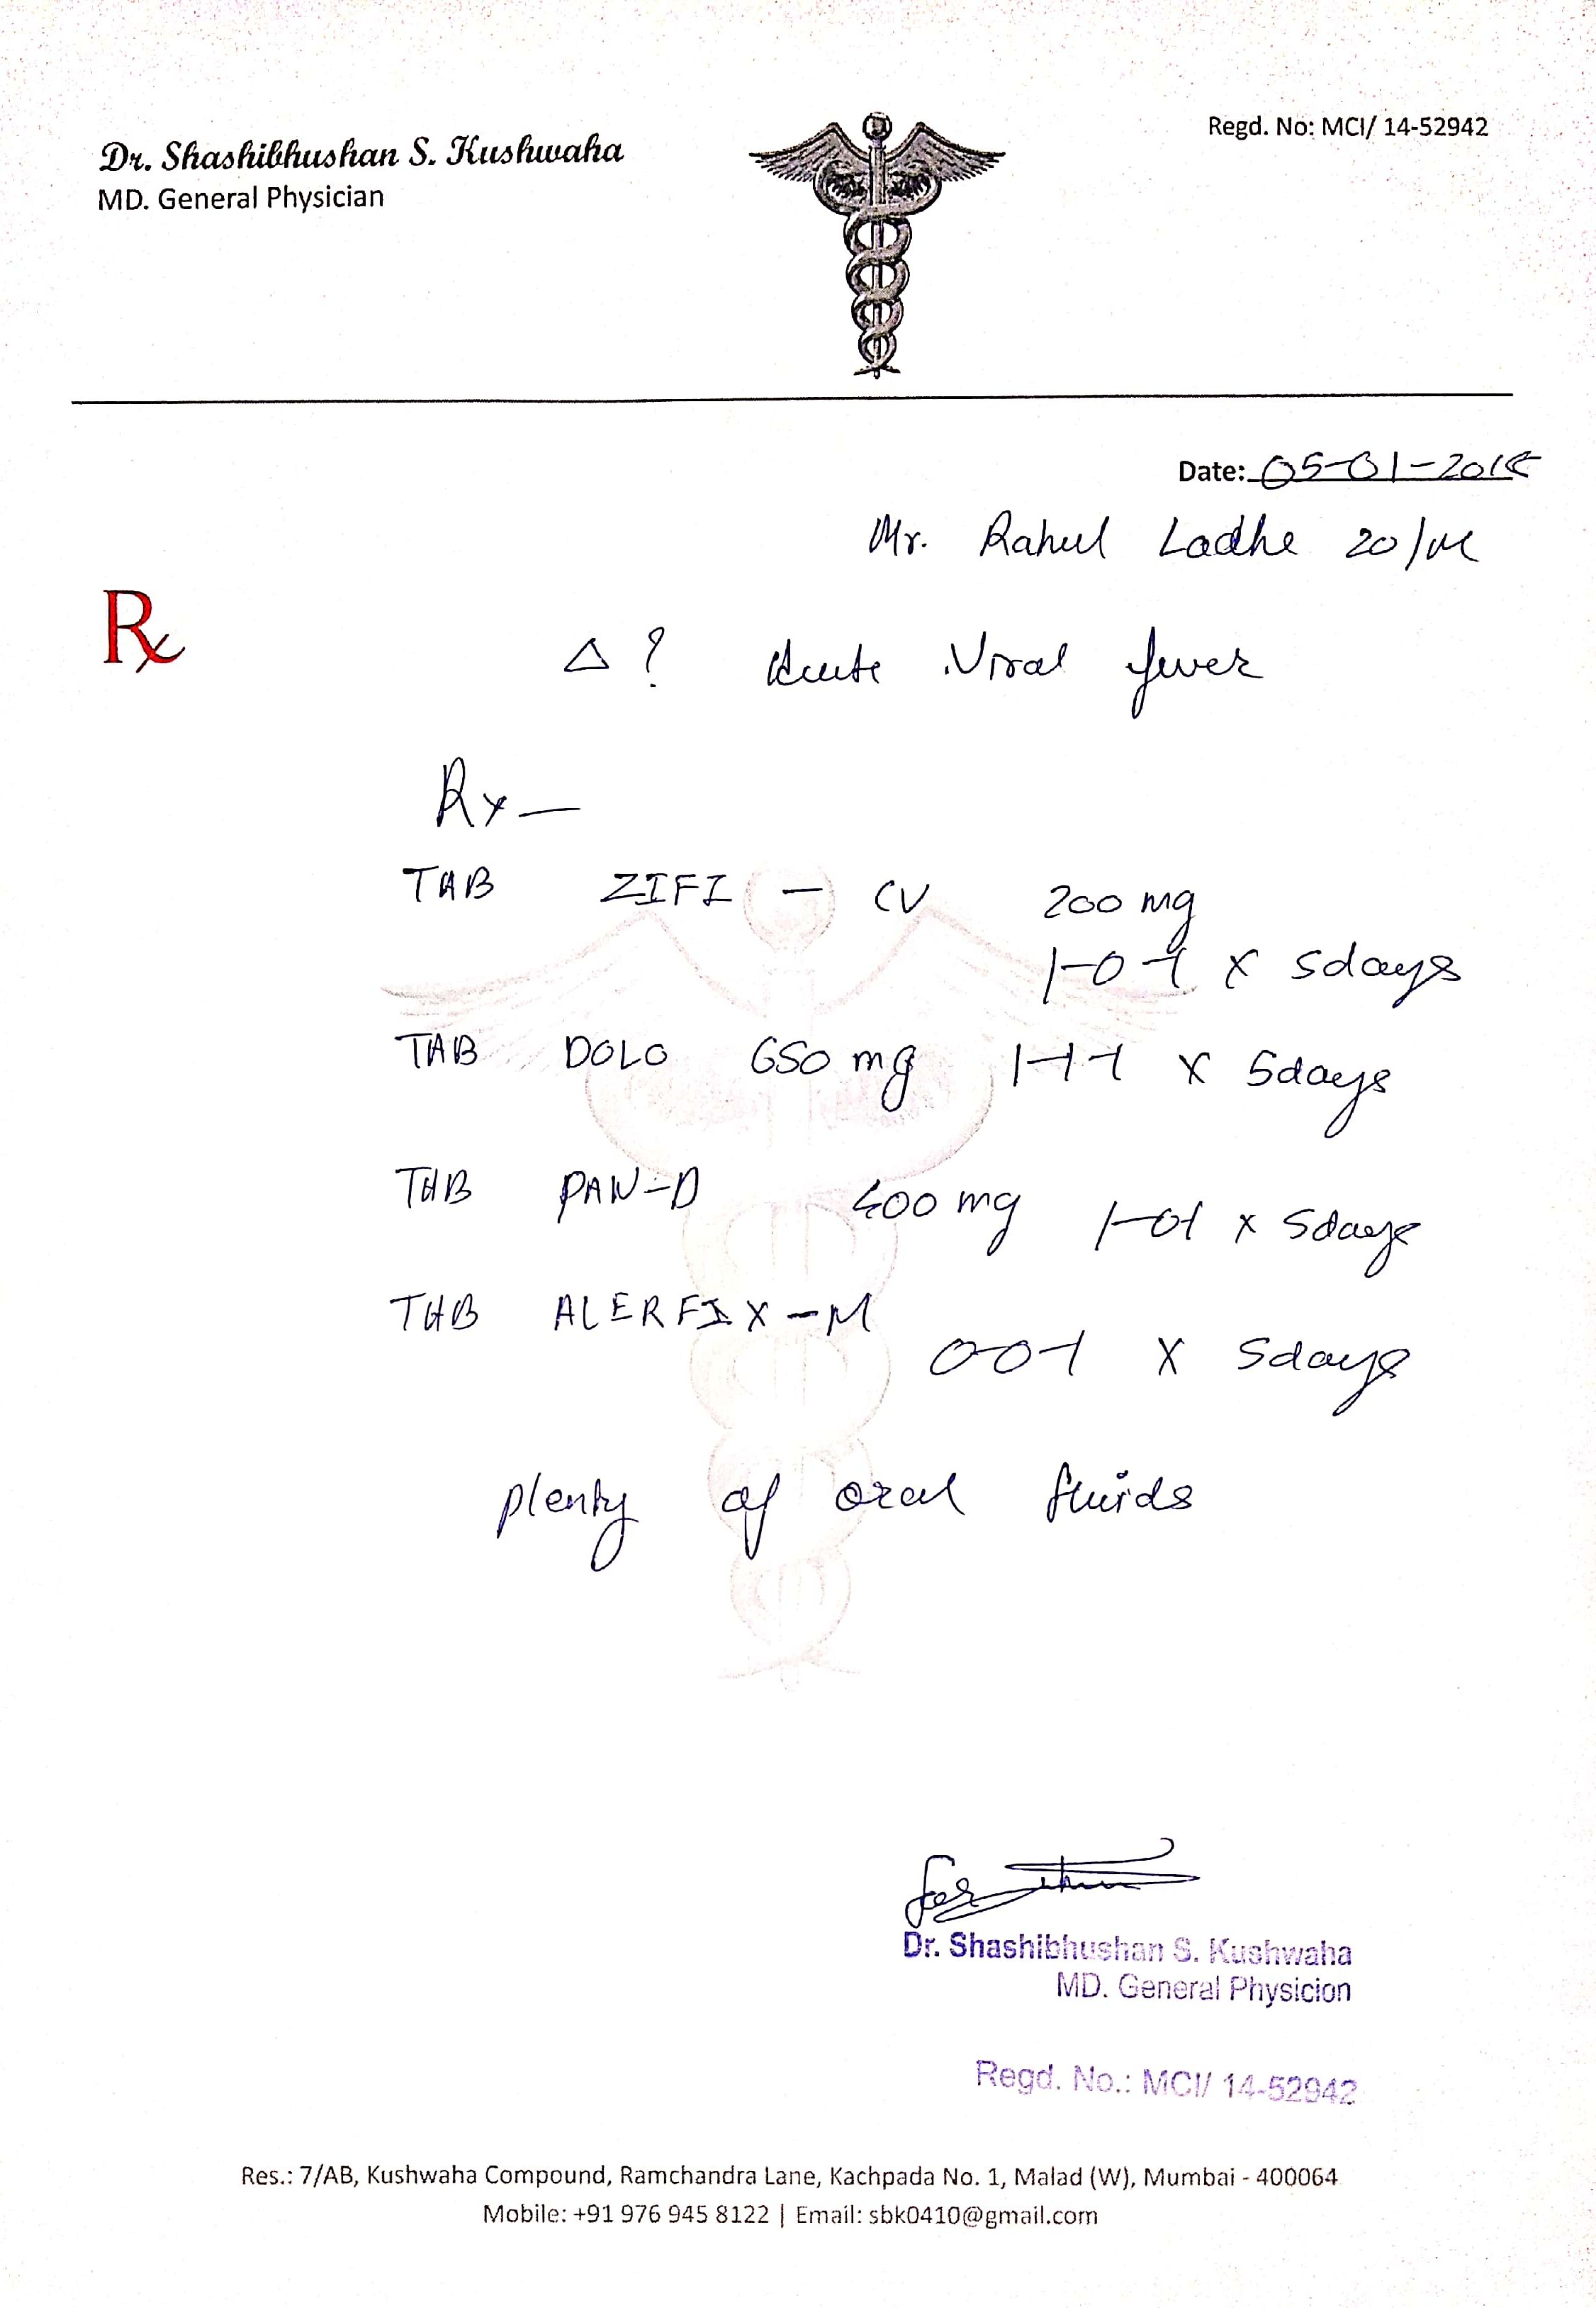 Dr. Shashibhushan S. Kushwaha
MD. General Physician
Regd. No: MCI/ 14-52942
Date: 05-01-2018
Mr. Rahul Ladhe 20/M
Rx
Δ ? Acute Viral fever
Rx —
TAB ZIFI - CV 200 mg
1-0-1 x 5days
TAB DOLO 650 mg 1-1-1 x 5days
TAB PAN-D 400 mg 1-0-1 x 5days
TAB ALERFIX-M
0-0-1 x 5days
plenty of oral fluids
Dr. Shashibhushan S. Kushwaha
MD. General Physicion
Regd. No.: MCI/ 14-52942
Res.: 7/AB, Kushwaha Compound, Ramchandra Lane, Kachpada No. 1, Malad (W), Mumbai - 400064
Mobile: +91 976 945 8122 | Email: sbk0410@gmail.com